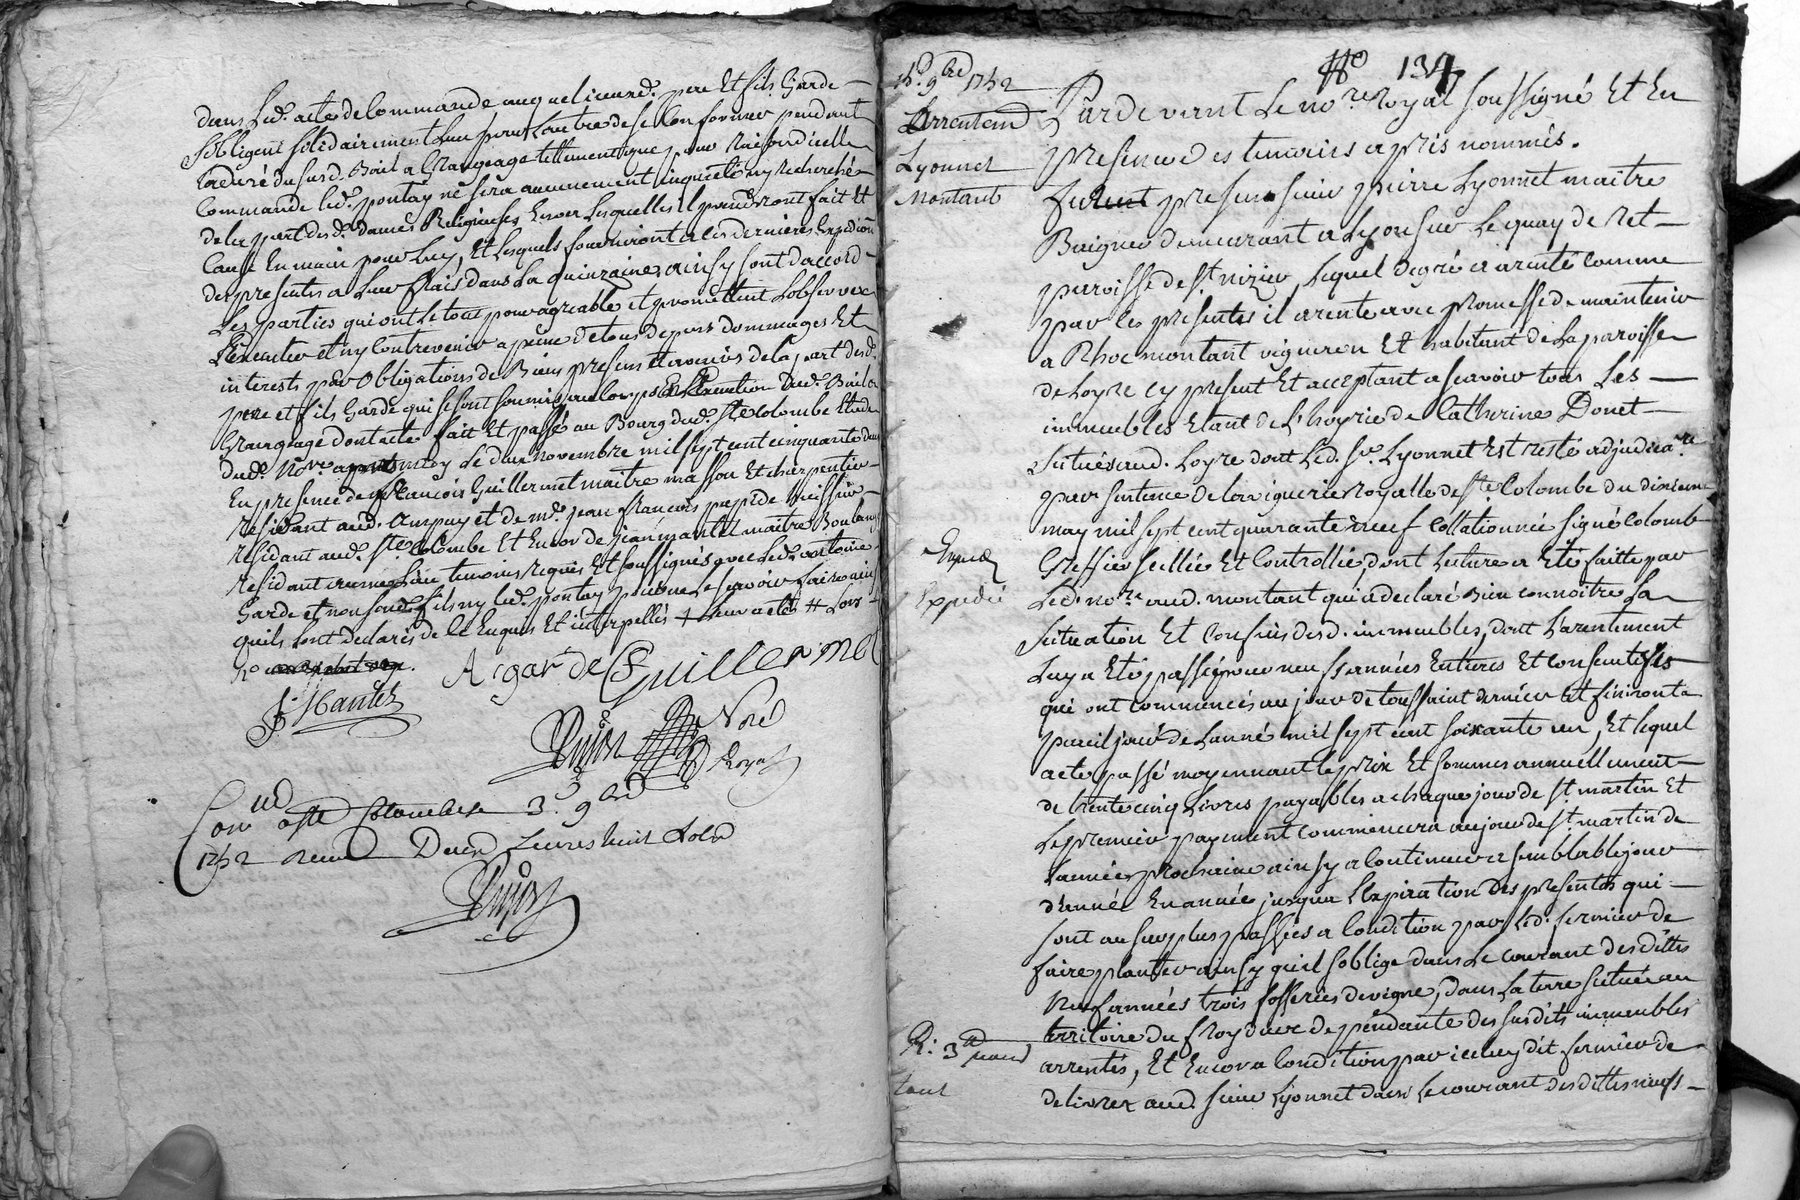 dans led. acte de Commande auquel iceux d. pere Et fils Garde
sobligent solidairement lun pour lautre de se Conformer pendant
la duré du susd. Bail a Grangeage tellement que pour Raison dicelle
Commande led. pontay ne sera aucunement inquieté ny recherché
de la part desd. dames Religieuses Envers lesquelles il prendront fait Et
Cause En main pour luy, Et lesquels fourniront a ces dernieres Expedition
des presentes a leur frais dans la quinzaine, ainsy sont daccord
Les parties qui ont le tout pour agreable et promettent Lobserver
Lexecuter et ny Contrevenir a peine de tous depens dommages Et
interests par Obligations de Biens presens et avenirs de la part desd.
pere et fils Garde qui se sont soumis au Corps Execution dud. Bail a
Grangeage dont acte fait Et passé au Bourg dud. Ste Colombe Etude
dud. Nore. apres midy Le deux novembre mil sept cent cinquante deux
En presence de francois Guillermet maitre masson Et charpentier
Residant aud. Ampuy et de me. jean francois huissier
résidant aud. Ste Colombe Et Encor de jean mantel maitre Boulanger
residant au mesme Lieu temoins requis Et soussignés avec led. antoine
Garde et non sond. fils ny led. pontay pour ne le scavoir faire ainsy
quils lont declarés de ce Enquis Et interpellés + leur acte # Lors
A gar de Guillermet
J. Mantel
Nore
Royal
Con ste Colombe 3. 9bre
1752 Receu Deux Livres huit sols
No 134
15. 9bre 1752
Arrentem
Lyonnet
Montant
Pardevant Le nore. royal soussigné Et En
presence des temoins apris nommés.
furent present sieur pierre Lyonnet maitre
Baigneur demeurant a Lyon sur Le quay de Ret
paroisse de st. nizier, Lequel de gré a arenté comme
par les presentes il arente avec promesse de maintenir
a Rhoc montant vigneron Et habitant de La paroisse
de Loyre cy present Et acceptant ascavoir tous Les
immeubles Etant de L'hoyrie de Catherine Donet
scitués aud. Loyre dont Led. Sr. Lyonnet Est resté adjudicare.
par sentence de la viguerie royalle de ste. Colombe du dixieme
may mil sept cent quarante neuf Collationnée signé Colomb
Greffier scellée Et Controllée, dont lecture a Eté faitte par
Led. nore. aud. montant qui a declaré Bien connoitre La
Expedié
scituation Et Confins desd. immeubles, dont L'arentement
Luy a Eté passé pour neuf années Entieres Et Consecutifves
qui ont commencés au jour de toussaint dernier Et finiront a
pareil jour de L'anné mil sept cent soixante un, Et lequel
acte passé moyennant le prix Et sommes annuellement
de trente cinq Livres payables a chaque jour de st. martin Et
Le premier payement commencera au jour de st. martin de
L'année prochaine ainsy a Continuer a semblable jour
d'année En année jusqua L'expiration des presentes qui
sont au surplus passées a Condition par Led. fermier de
faire planter ainsy quil soblige dans Le courant des dittes
Neuf années trois fosserées de vigne, dans La terre scituée au
territoire du froyd dépendante des susdits immeubles
arrentés, Et Encor a Condition par iceluy dit fermier de
delivrer aud. sieur Lyonnet dans Le courant des dittes neuf